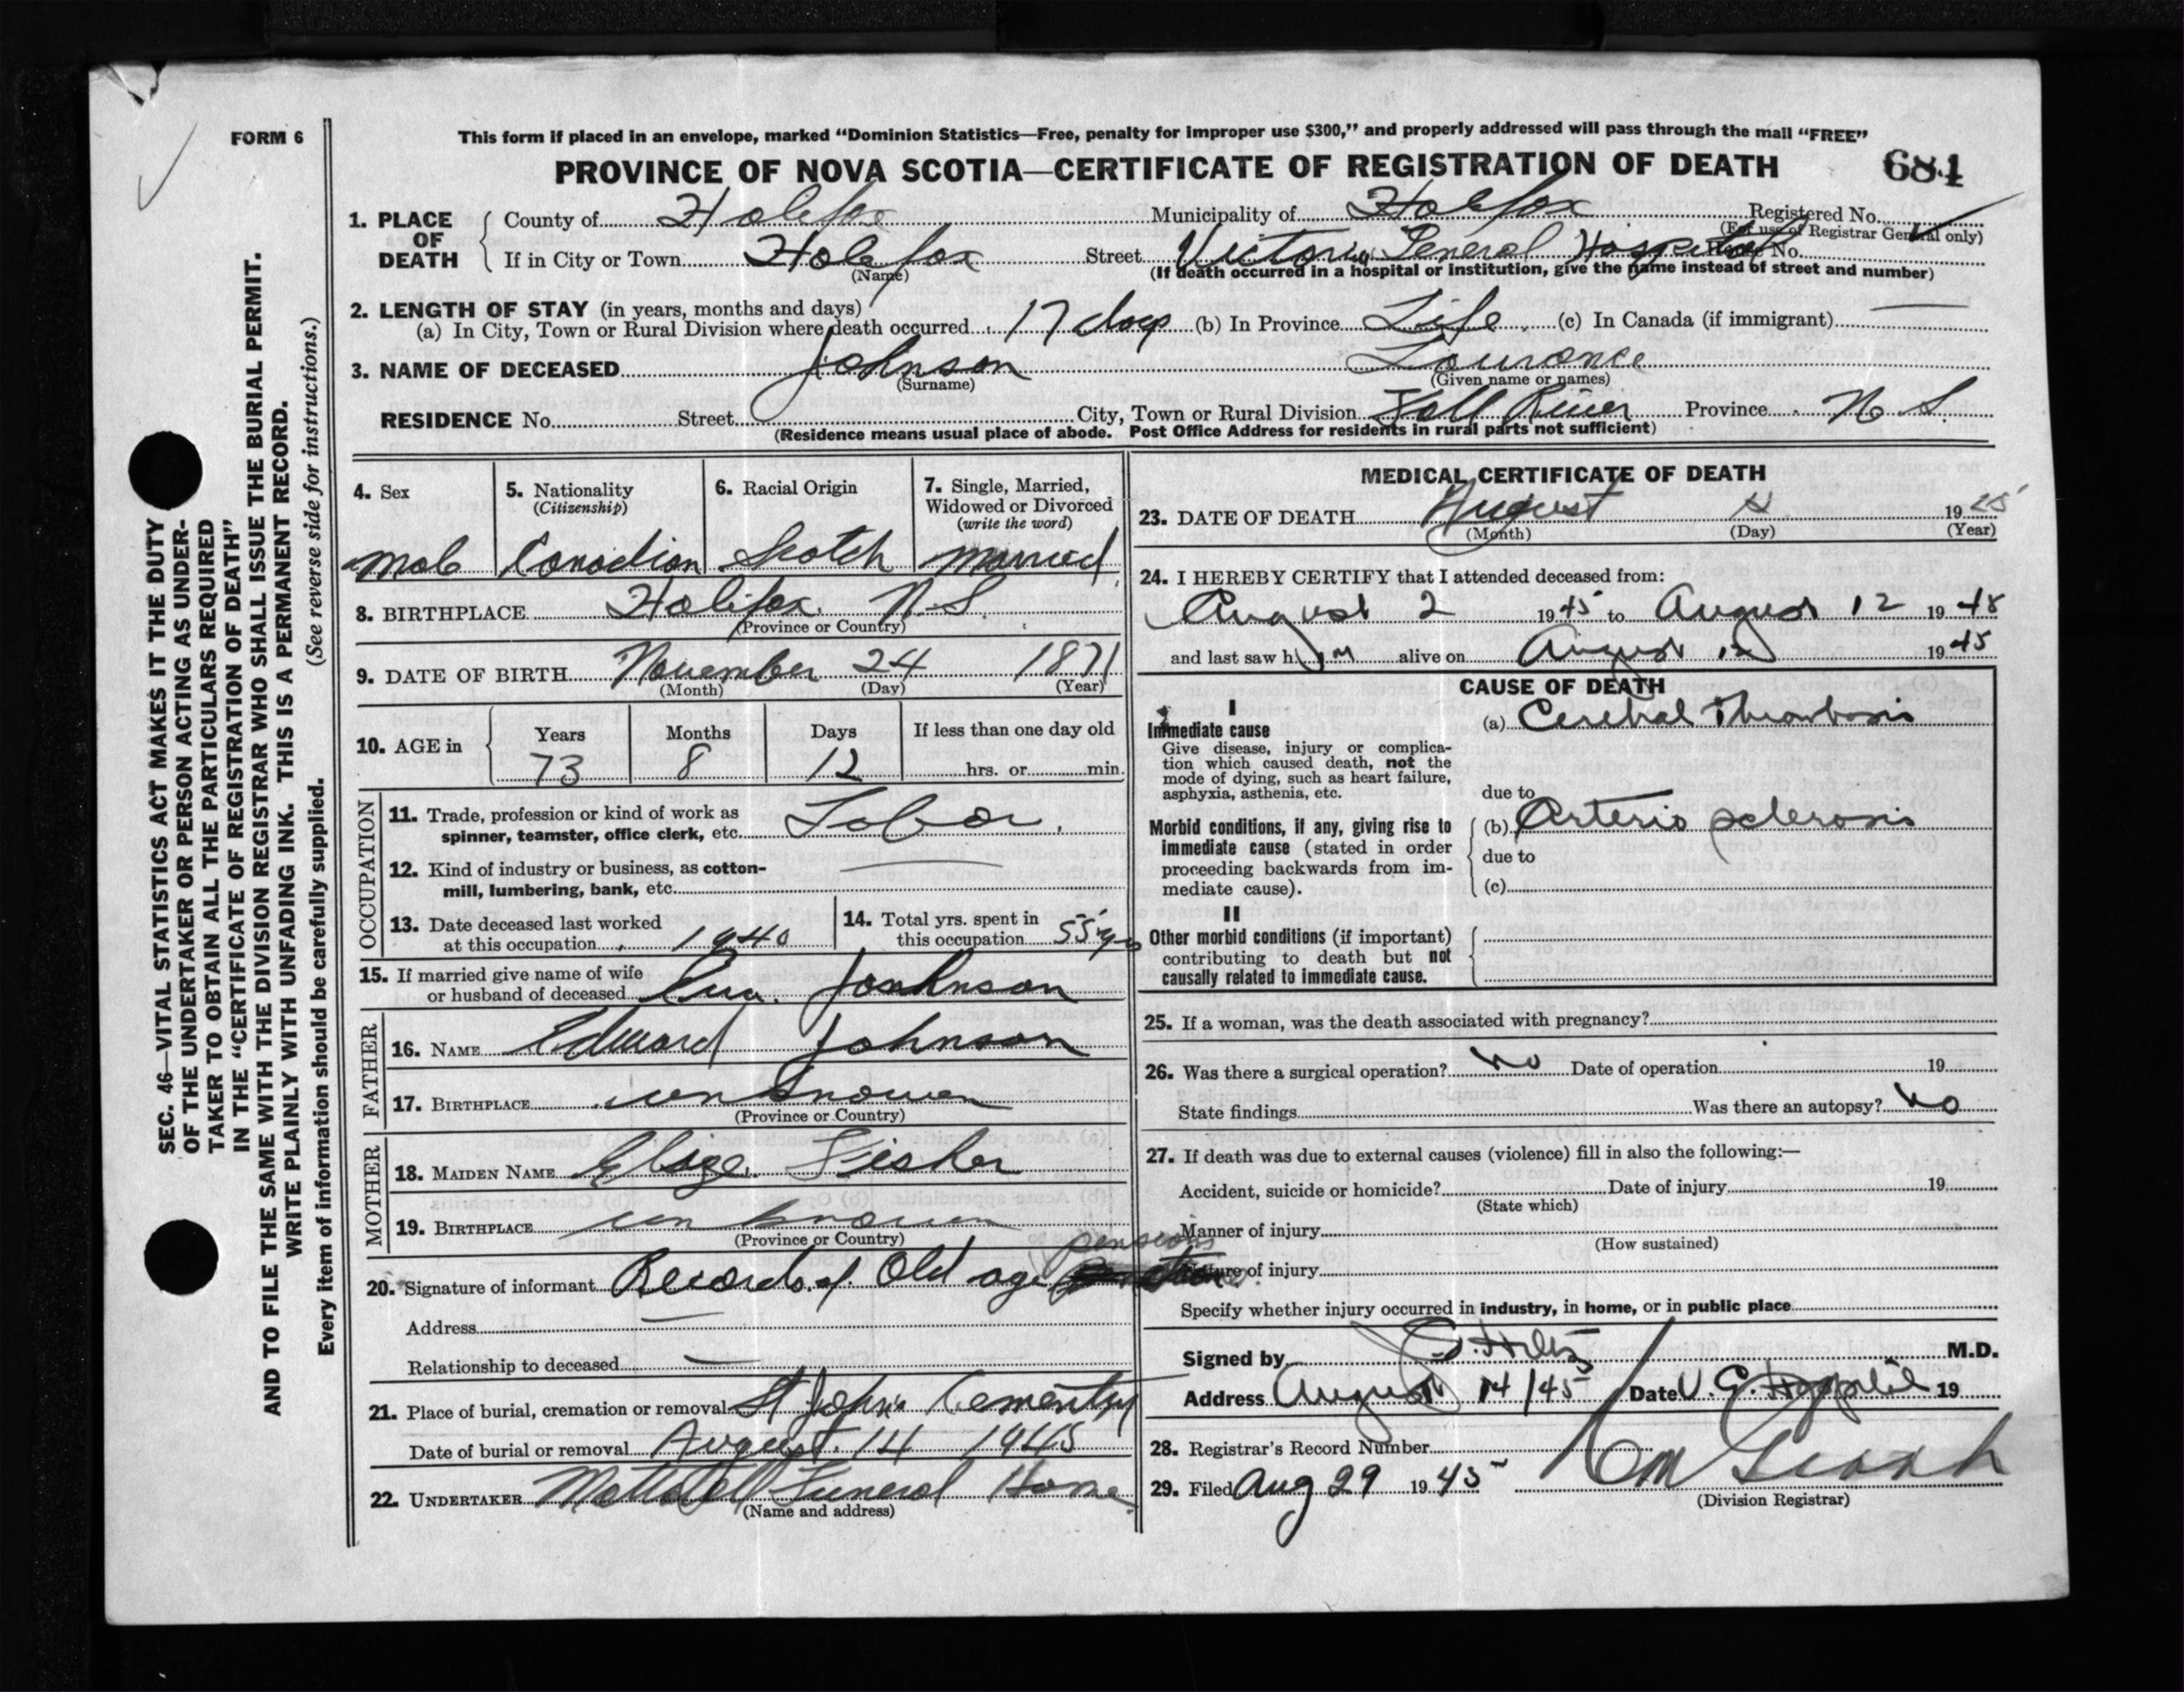 FORM 6
This form if placed in an envelope, marked “Dominion Statistics—Free, penalty for improper use $300,” and properly addressed will pass through the mail “FREE”
PROVINCE OF NOVA SCOTIA—CERTIFICATE OF REGISTRATION OF DEATH 684
1. PLACE OF DEATH
County of Halifax Municipality of Halifax Registered No.
(For use of Registrar General only)
If in City or Town Halifax Street Victoria General Hospital House No.
(Name) (If death occurred in a hospital or institution, give the name instead of street and number)
2. LENGTH OF STAY (in years, months and days)
(a) In City, Town or Rural Division where death occurred 17 days (b) In Province Life (c) In Canada (if immigrant) —
3. NAME OF DECEASED Johnson Lawrence
(Surname) (Given name or names)
RESIDENCE No. Street City, Town or Rural Division Fall River Province N S
(Residence means usual place of abode. Post Office Address for residents in rural parts not sufficient)
SEC. 46—VITAL STATISTICS ACT MAKES IT THE DUTY
OF THE UNDERTAKER OR PERSON ACTING AS UNDER-
TAKER TO OBTAIN ALL THE PARTICULARS REQUIRED
IN THE “CERTIFICATE OF REGISTRATION OF DEATH”
AND TO FILE THE SAME WITH THE DIVISION REGISTRAR WHO SHALL ISSUE THE BURIAL PERMIT.
WRITE PLAINLY WITH UNFADING INK. THIS IS A PERMANENT RECORD.
Every item of information should be carefully supplied. (See reverse side for instructions.)
4. Sex
Male
5. Nationality
(Citizenship)
Canadian
6. Racial Origin
Scotch
7. Single, Married,
Widowed or Divorced
(write the word)
Married
8. BIRTHPLACE Halifax N.S.
(Province or Country)
9. DATE OF BIRTH November 24 1871
(Month) (Day) (Year)
10. AGE in Years Months Days If less than one day old
73 8 12 hrs. or min.
OCCUPATION
11. Trade, profession or kind of work as
spinner, teamster, office clerk, etc. Labor
12. Kind of industry or business, as cotton-
mill, lumbering, bank, etc. —
13. Date deceased last worked
at this occupation 1940
14. Total yrs. spent in
this occupation 55 yrs
15. If married give name of wife
or husband of deceased Eva. Johnson
FATHER
16. NAME Edward Johnson
17. BIRTHPLACE unknown
(Province or Country)
MOTHER
18. MAIDEN NAME Fisher
19. BIRTHPLACE unknown
(Province or Country)
20. Signature of informant Records of Old age pensions
Address —
Relationship to deceased —
21. Place of burial, cremation or removal St John's Cementry
Date of burial or removal August. 14 1945
22. UNDERTAKER Mattatall Funeral Home
(Name and address)
MEDICAL CERTIFICATE OF DEATH
23. DATE OF DEATH August 19
(Month) (Day) (Year)
24. I HEREBY CERTIFY that I attended deceased from:
August 2 1945 to August 12 1945
and last saw him alive on August 12 1945
CAUSE OF DEATH
I
Immediate cause
Give disease, injury or complica-
tion which caused death, not the
mode of dying, such as heart failure,
asphyxia, asthenia, etc.
(a) Cerebral Thrombosis
due to
Morbid conditions, if any, giving rise to
immediate cause (stated in order
proceeding backwards from im-
mediate cause).
(b) Arterio sclerosis
due to
(c)
II
Other morbid conditions (if important)
contributing to death but not
causally related to immediate cause.
25. If a woman, was the death associated with pregnancy?
26. Was there a surgical operation? No Date of operation 19
State findings Was there an autopsy? No
27. If death was due to external causes (violence) fill in also the following:—
Accident, suicide or homicide? Date of injury 19
(State which)
Manner of injury
(How sustained)
Nature of injury
Specify whether injury occurred in industry, in home, or in public place
Signed by M.D.
Address August 14/45 Date 19
28. Registrar's Record Number
29. Filed Aug 29 1945
(Division Registrar)